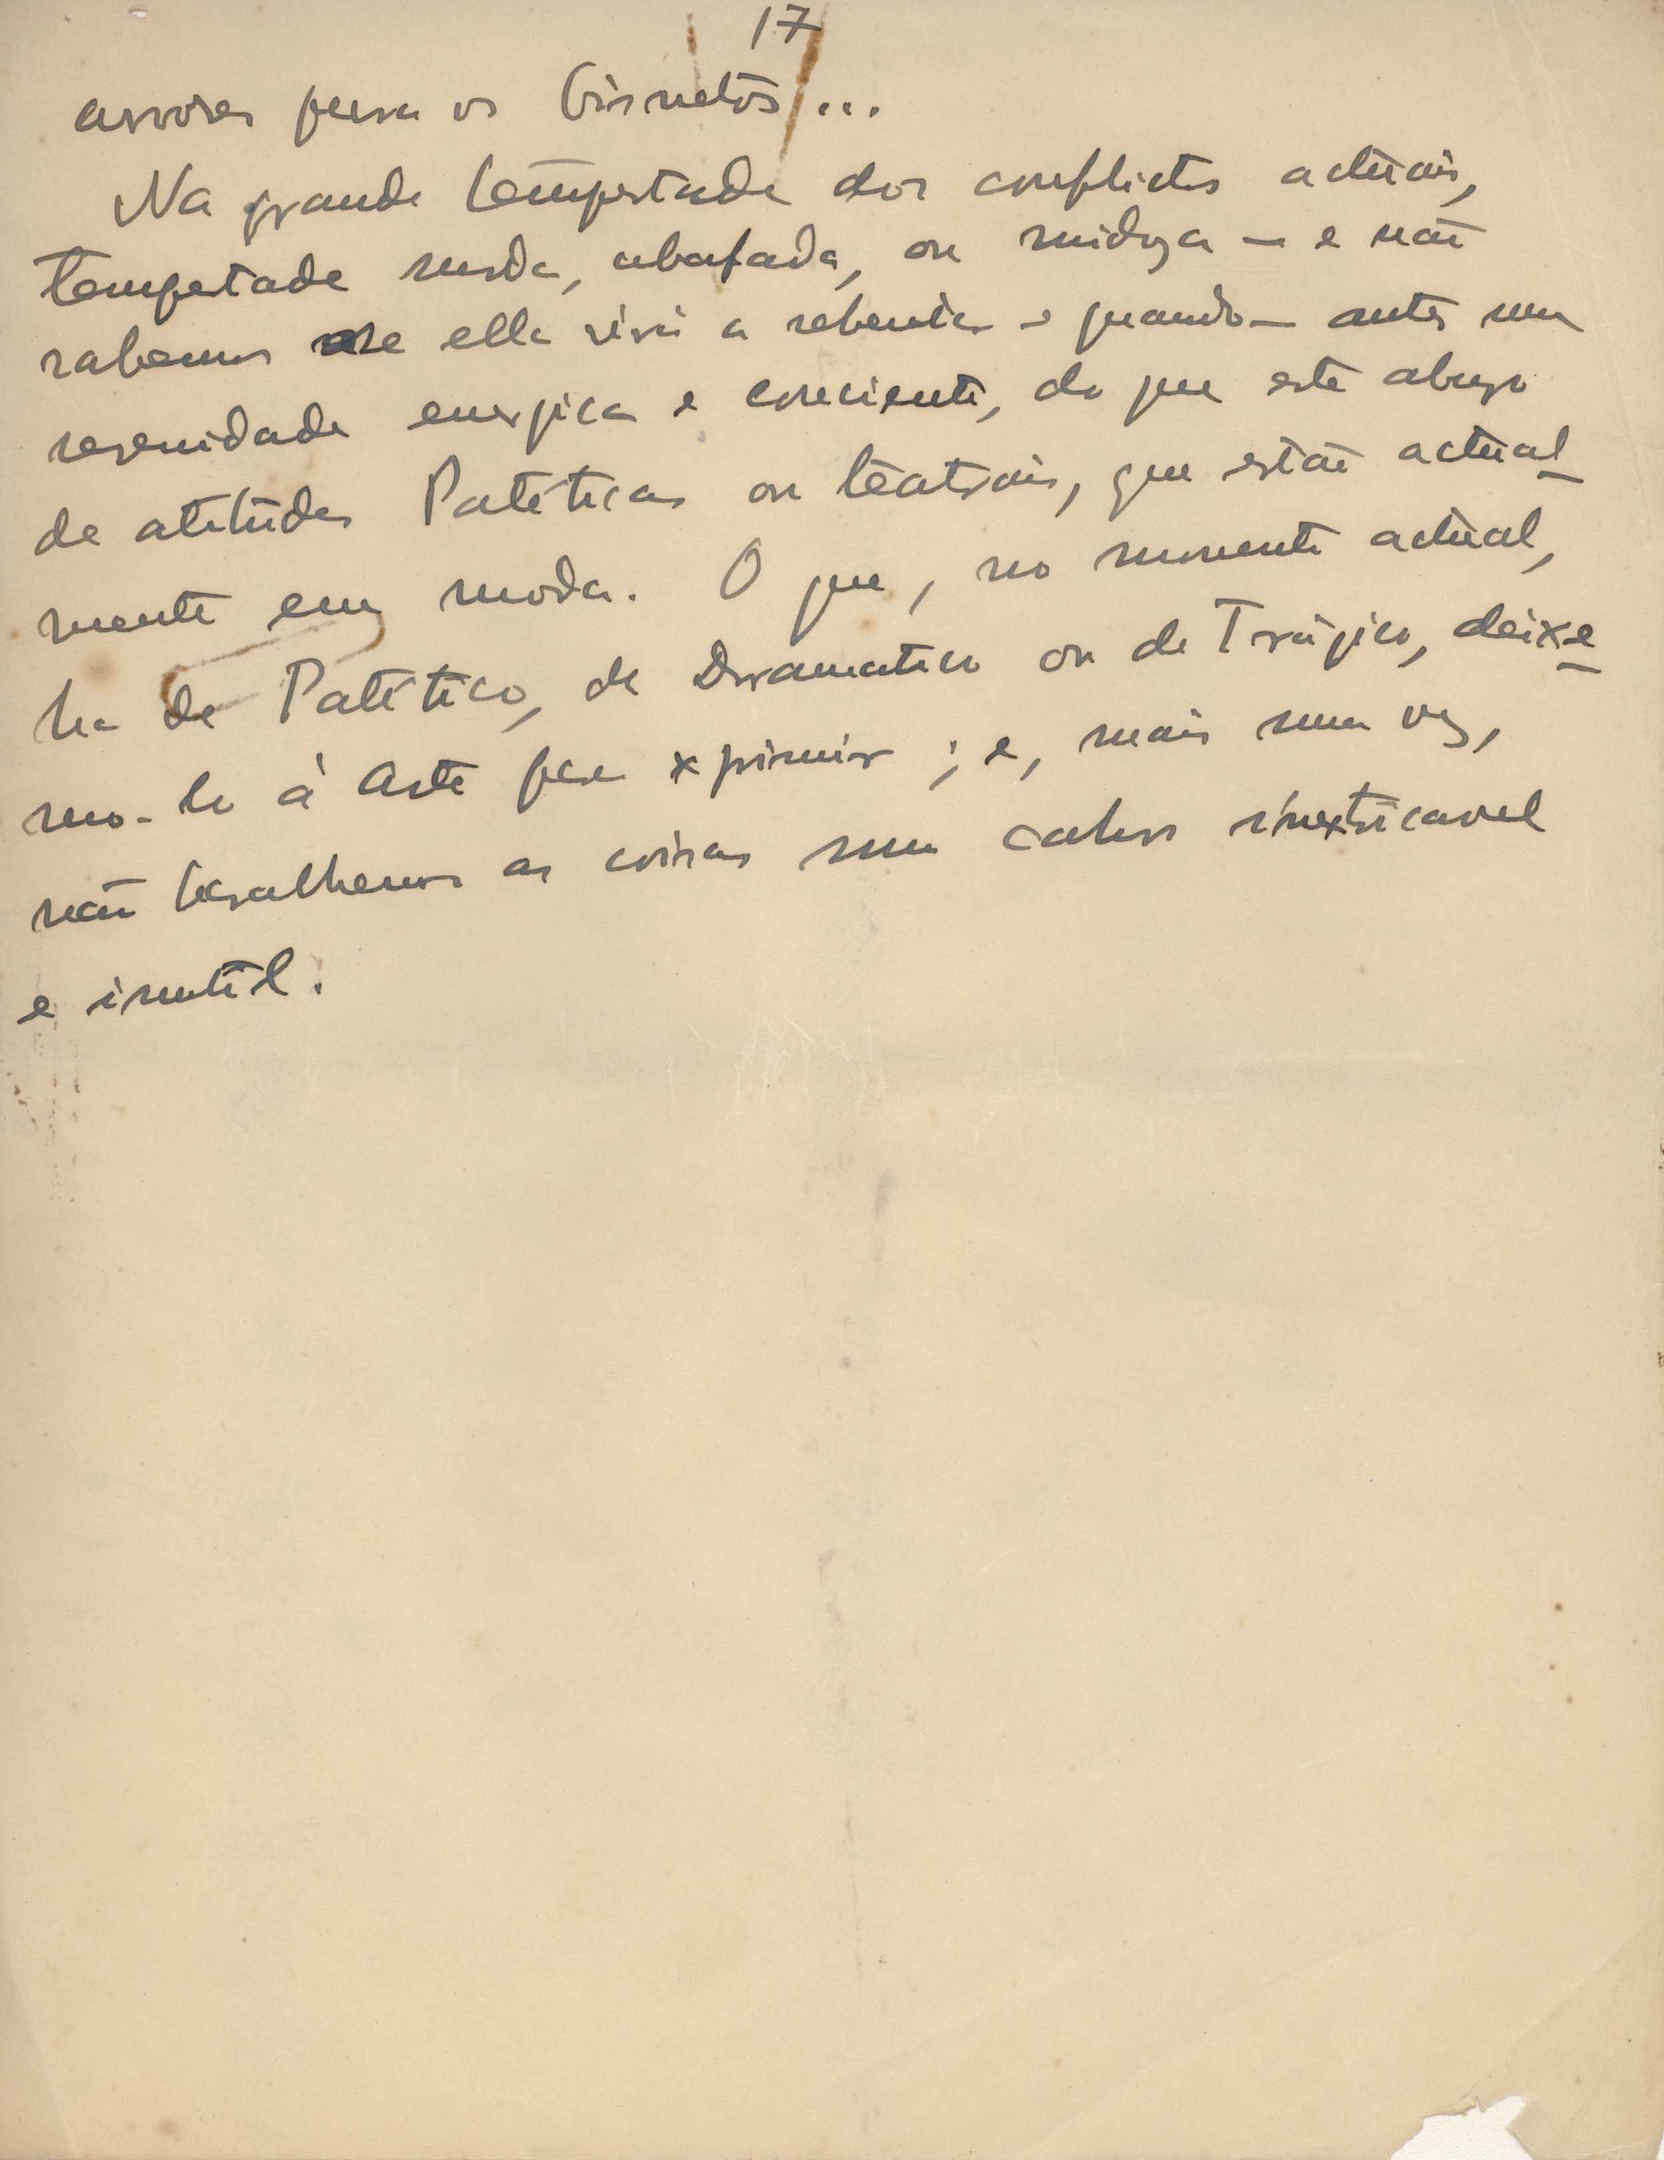 17
arvores para os bisnetos...
Na grande tempestade dos conflictos actuais,
tempestade surda, abafada, ou ruidoza — e não
sabemos se ella virá a rebentar e quando — antes uma
serenidade energica e conciente, do que este abuso
de atitudes Patéticas ou teatrais, que estão actual-
mente em moda. O que, no momento actual,
ha de Patético, de Dramatico ou de Trágico, deixe-
mo-lo à Arte para exprimir; e, mais uma vez,
não baralhemos as coisas num cahos inextricavel
e inutil.